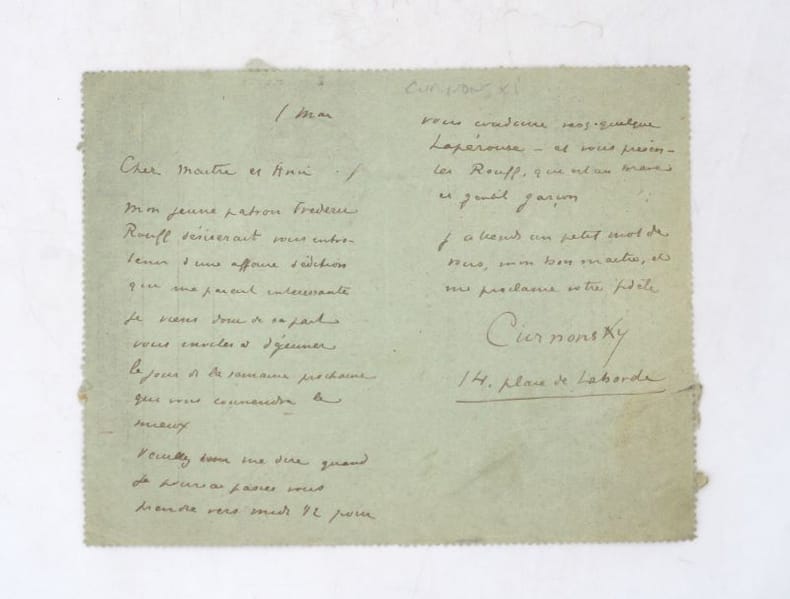 1 Mar
Cher Maitre et Ami
Mon jeune patron Frederic
Rouff désirerait vous entre-
tenir d'une affaire d'édition
qui me parait intéressante
Je viens donc de sa part
vous inviter à déjeuner
le jour de la semaine prochaine
qui vous conviendra le
mieux
Veuillez me dire quand
je pourrai passer vous
prendre vers midi 1/2 pour
CURNONSKI
vous conduire quelque
Lapérouse - et vous présen-
ter Rouff, qui est un brave
et gentil garçon
J'attends un petit mot de
vous, mon bon maitre, et
me proclame votre fidèle
Curnonsky
14, place de Laborde